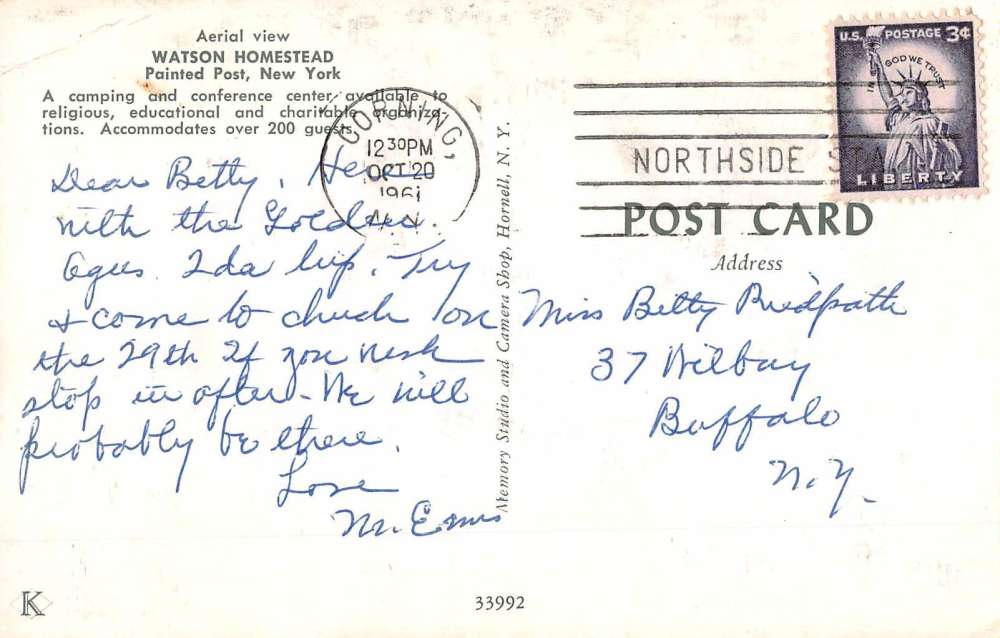 Aerial view
WATSON HOMESTEAD
Painted Post, New York
A camping and conference center available to
religious, educational and charitable organiza-
tions. Accommodates over 200 guests.
Dear Betty, Here
with the Golden
Ages. Try
& come to church on
the 29th If you wish
stop in after - We will
probably be there.
Love
CORNING,
12 30 PM
OCT 20
1961
N.Y.
NORTHSIDE STA
U.S. POSTAGE 3¢
IN GOD WE TRUST
LIBERTY
POST CARD
Address
Miss Betty Ridpath
37 Wilbury
Buffalo
N.Y.
Memory Studio and Camera Shop, Hornell, N. Y.
K
33992